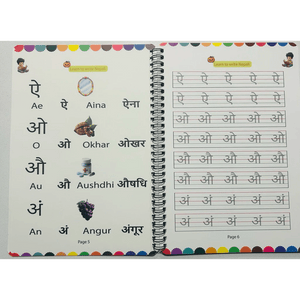 Learn to write Nepali
ऐ
Ae ऐ Aina ऐना
ओ
O ओ Okhar ओखर
औ
Au औ Aushdhi औषधि
अं
An अं Angur अंगूर
Page 5
Learn to write Nepali
ऐ ऐ ऐ ऐ ऐ
ऐ ऐ ऐ ऐ ऐ
ओ ओ ओ ओ ओ
ओ ओ ओ ओ ओ
औ औ औ औ औ
औ औ औ औ औ
अं अं अं अं अं
अं अं अं अं अं
Page 6